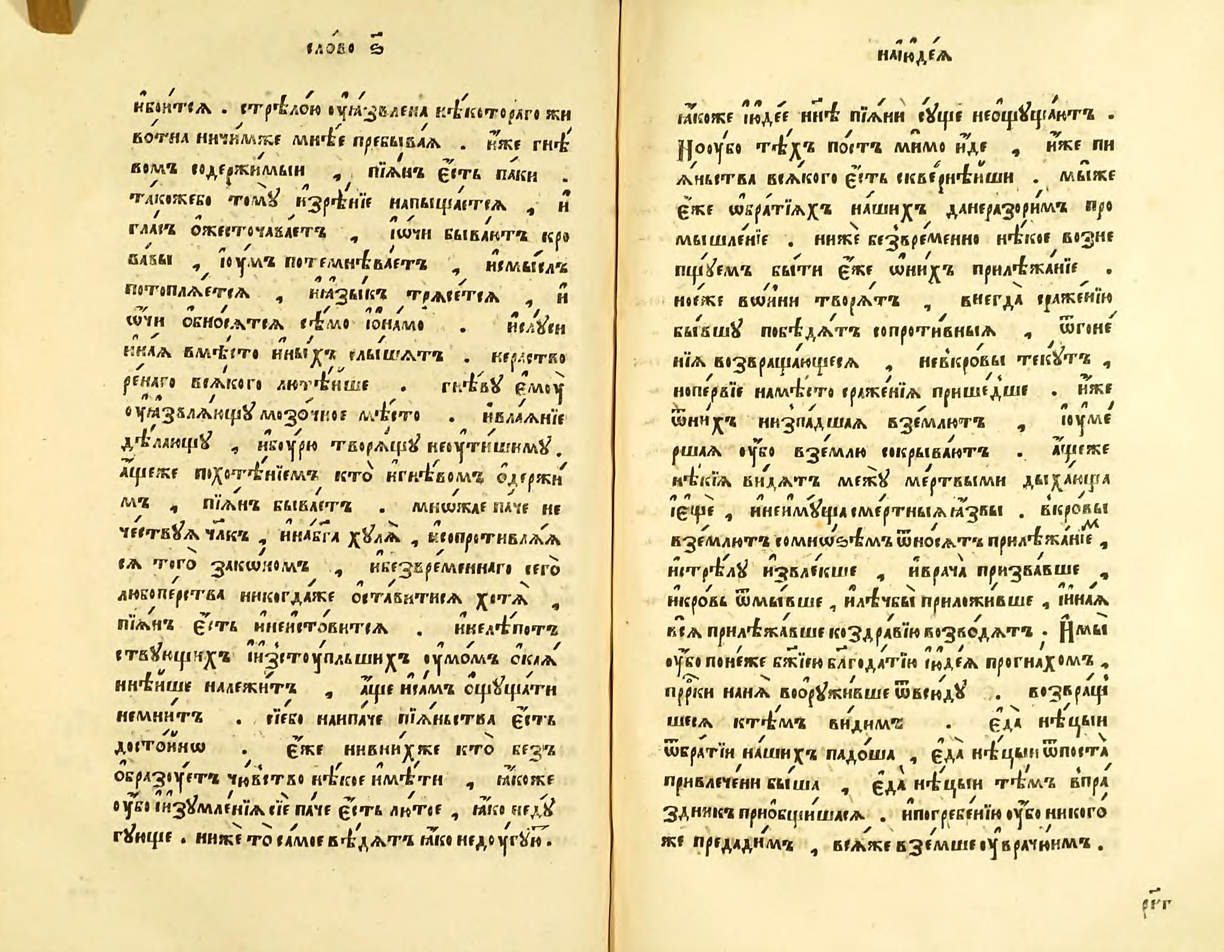 сло́во ѕ҃
ибои́тсѧ . стрѣло́ю оуꙗ҆́звлена нѣ́котораго жи
во́тна ничи́мже мнѣ́е пребыва́ѧ . и҆́же гнѣ́
вомъ содержи́мыи , пїѧ́нъ є҆́сть па́ки .
та́кожебо томꙋ̀ изрѣ́нїе напыща́етсѧ , и҆
гла́съ ѡ҆жесточа́ваетъ , їѻ҆́чи быва́ютъ кро
ва́вы , їоу҆́мъ потемнѣва́етъ , имы́слъ
потоплѧ́етсѧ , иꙗ҆зы́къ трѧсе́тсѧ , и҆
ѻ҆́чи обно́сѧтсѧ сѣ́мо їона́мо . ислꙋ́си
инаѧ вмѣ́сто ины́хъ слы́шатъ . нераство
ре́наго всѧ́кого лютѣ́йше . гнѣ́вꙋ є҆моу҆̀
оуꙗзвлѧ́ющꙋ мозо́чное мѣ́сто . ивлаѧ́нїе
дѣ́лающꙋ , ибоу́рю творѧ́щꙋ неоути́шимꙋ .
а҆́щеже похотѣ́нїемъ кто̀ игнѣ́вомъ ѻ҆держи́
мъ , пїѧ́нъ быва́етъ . мно́жае па́че не
че́ствꙋѧ чл҃къ , ина́бг҃а хꙋ́лѧ , исопротивлѧ́ѧ
сѧ того̀ зако́номъ , ибезвре́меннаго сего̀
любопе́рства никогда́же ѻ҆ста́витисѧ хотѧ̀ ,
пїѧ́нъ є҆́сть инеи́стовитсѧ . инелѣ́потъ
ствꙋющихъ їиз̾стоупльшихъ оумо́мъ ѻ҆каѧ
ннѣ́йше належи́тъ , а҆́ще иса́мъ ѻ҆щꙋща́ти
немни́тъ . сїе́бо наипа́че пїѧ́ньства є҆́сть
досто́йнѡ . є҆́же нивни́хже кто̀ без̾
ѻ҆бразоу́етъ чю́вство нѣ́кое имѣ́ти , ꙗ҆́коже
оу҆́бо їизꙋмле́нїѧ сїѐ па́че є҆́сть лю́тое , ꙗ҆́ко недꙋ
гꙋюще . нижѐ то̀ са́мое вѣ́дѧтъ ꙗ҆́ко недоу́гꙋю҃.
наїю҆де́ѧ
ꙗ҆́коже їю҆де́е нн҃ѣ пїѧ́ни сꙋ́ще неѻщꙋща́ютъ .
Нооу́бо тѣ́хъ по́стъ ми́мо и҆́де , и҆́же пи
ѧ́ньства всѧ́кого є҆́сть скве́рнѣйши . мы́же
є҆́же ѡ҆бра́тїѧхъ на́шихъ данеразори́мъ про
мышле́нїе . нижѐ безвре́менно нѣ́кое возне
пщꙋ́емъ бы́ти є҆́же ѡ҆ни́хъ прилѣжа́нїе .
но́еже во́ини творѧ́тъ , внегда̀ сраже́нїю
бы́вшꙋ побѣдѧ́тъ сопроти́вныѧ , ѿгоне́
нїѧ возвраща́ющесѧ , невкро́вы текꙋ́тъ ,
нопе́рвїе намѣ́сто сраже́нїѧ прише́дше . и҆́же
ѿни́хъ низпа́дшаѧ взе́млютъ , їоуме́
ршаѧ оу҆́бо взе́млю сокрыва́ютъ . а҆́щеже
нѣ́кїѧ ви́дѧтъ межꙋ̀ ме́ртвыми ды́хающа
їе҆щѐ , инеи҆мꙋща сме́ртныѧ ꙗ҆́звы . вкро́вы
взе́млютъ сомно́ѕѣмъ ѿно́сѧтъ прилѣжа́нїемъ ,
истрѣ́лꙋ извле́кше , иврача̀ призва́вше ,
икро́вь ѿмы́вше , илѣчбы̀ приложи́вше , їи́наѧ
всѧ̀ прилѣжа́вше коздра́вїю возво́дѧтъ . Имы́
оу҆́бо поне́же бж҃їею блг҃ода́тїю їю҆де́ѧ прогна́хомъ ,
прⷪ҇ки нанѧ̀ воорꙋжи́вше ѿвсю́дꙋ . возврати́в
шесѧ ктѣ́мъ ви́димъ . є҆да̀ нѣ́цыи
ѿбра́тїи на́шихъ падо́ша , є҆да̀ нѣ́цыи ѿпоста̀
привлече́ни бы́ша , є҆да̀ нѣ́цыи тѣ́мъ впра́
здникъ приобщи́шасѧ . ипогребе́нїю оу҆́бо нико́го
же предади́мъ , всѧ́же взе́мше оу҆врачю́имъ .
рк҃г